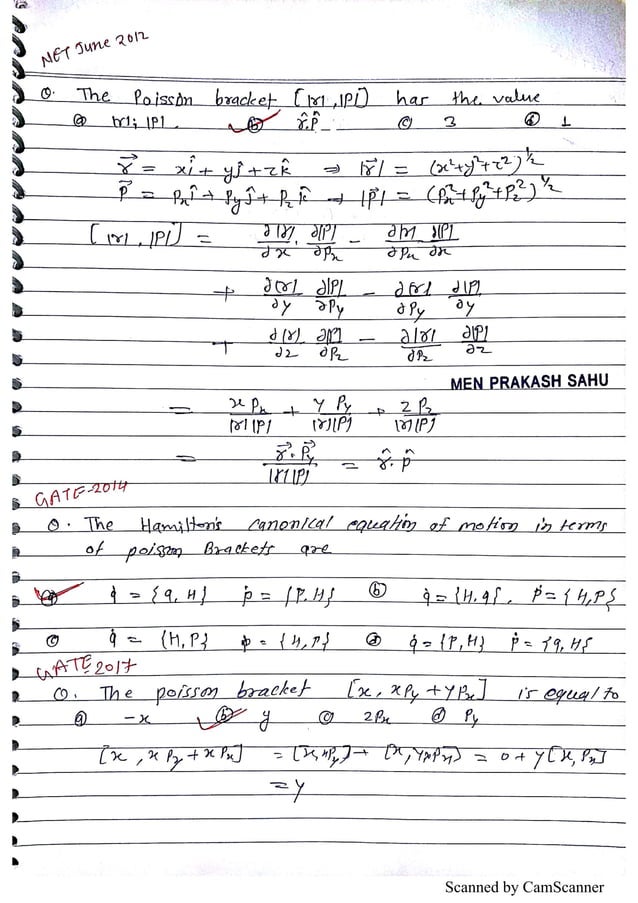 NET June 2012
Q. The Poisson bracket [|r|, |P|] has the value
(a) |r|; |P|. (b) r̂.p̂ (c) 3 (d) 1
r⃗ = xî + yĵ + zk̂ ⇒ |r⃗| = (x²+y²+z²)^½
P⃗ = Pxî + Pyĵ + Pzk̂ → |P⃗| = (Px²+Py²+Pz²)^½
[|r|, |P|] = ∂|r|/∂x . ∂|P|/∂Px − ∂|r|/∂Px ∂|P|/∂x
+ ∂|r|/∂y ∂|P|/∂Py − ∂|r|/∂Py ∂|P|/∂y
+ ∂|r|/∂z ∂|P|/∂Pz − ∂|r|/∂Pz ∂|P|/∂z
MEN PRAKASH SAHU
= xPx/|r||P| + yPy/|r||P| + zPz/|r||P|
= r⃗.P⃗y/|r||P| = r̂.p̂
GATE-2014
Q. The Hamilton's canonical equation of motion in terms
of poisson Brackets are
(a) q̇ = {q, H} ṗ = {P, H} (b) q̇ = {H, q}, ṗ = {H, P}
(c) q̇ = {H, P} ṗ = {H, P} (d) q̇ = {P, H} ṗ = {q, H}
GATE-2017
Q. The poisson bracket [x, xPy + yPx] is equal to
(a) −x (b) y (c) 2Px (d) Py
[x, xPy + xPx] = [x, xPy] + [x, yPx] = 0 + y[x, Px]
= y
Scanned by CamScanner